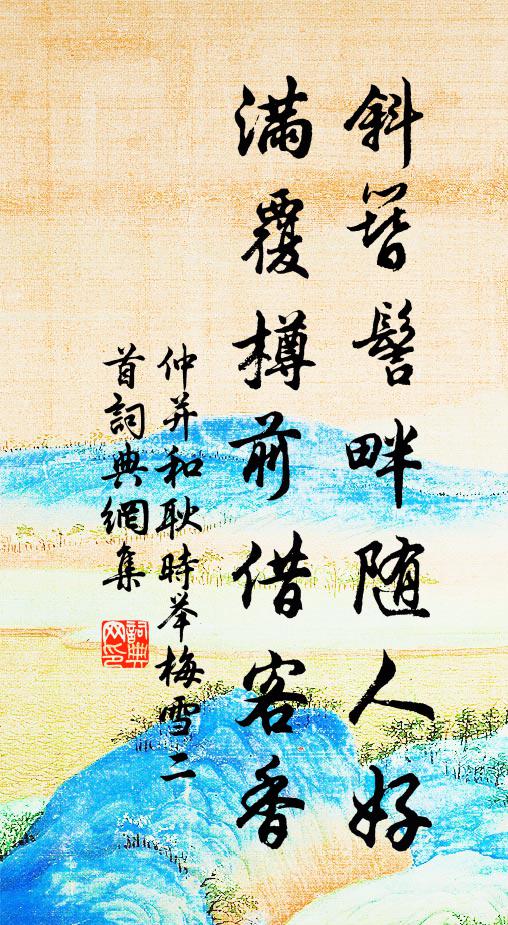 斜簪髻畔随人好
满覆樽前借客香
仲并和耿時举梅雪二
首詞典網集
詞典
网印